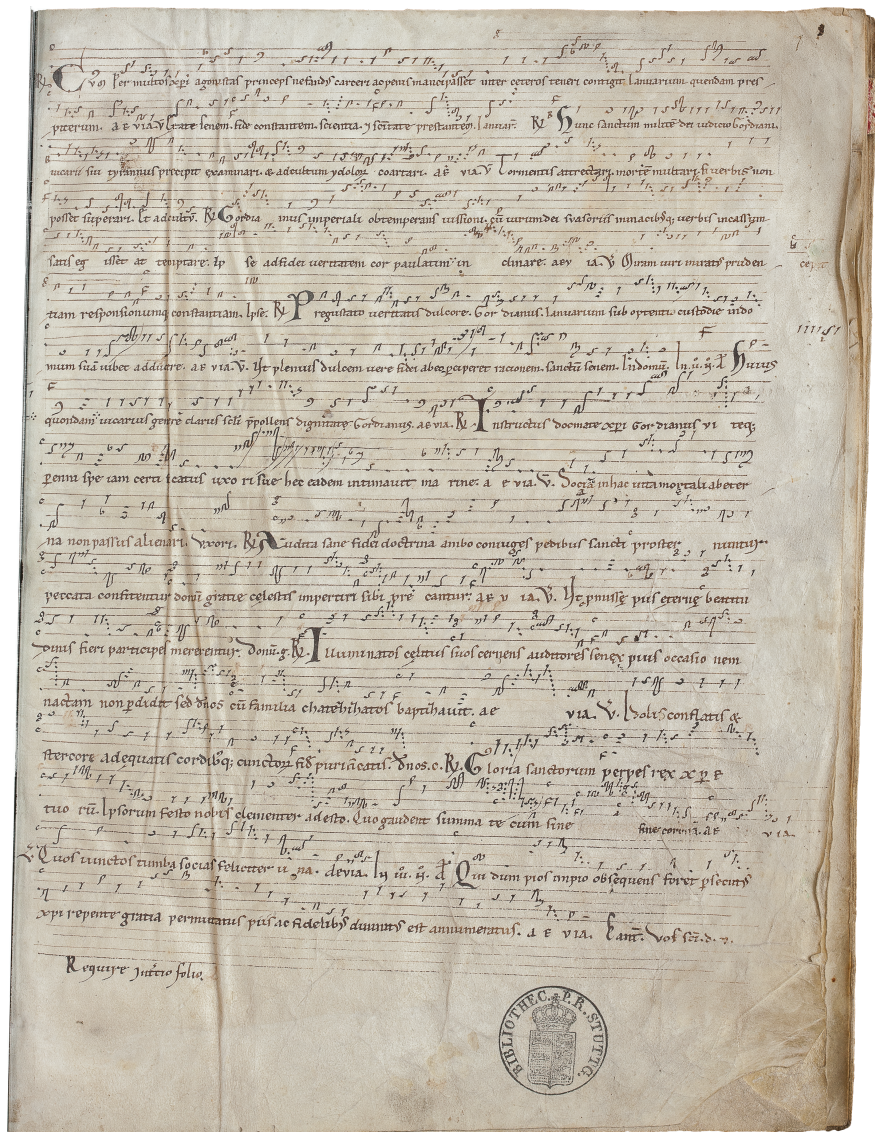 Cum per multos xpi agonistas princeps nefandus carceri ac penis mancipasset inter ceteros teneri contigit Ianuarium quendam pres
piterum. aevia. V Etate senem. fide constantem. scientia. 7 scitate prestantem. Ianuar. R Hunc sanctum milite dei iudicio Gordiani
vicarii sui tyrannus precepit examinari. & ad cultum ydolor coartari. ae via. V Tormentis attrectari. morte multari. si verbis non
posset superari. Et ad cultu. R Gordia nus imperiali obtemperans iussioni. cu virum dei suasoriis minacibusq; verbis incassum
satis eg isset at temptare. Ip se ad fidei veritatem cor paulatim in clinare. aev ia. V Quam viri miratus pruden
tiam responsionumq constantiam. Ipse. R Pregustato veritatis dulcore. Gor dianus. Ianuarium sub optentu custodie indo
mum sua iubet adducere. ae via. V. Ut plenius dulcem vere fidei ab eo perciperet racionem. sanctu senem. In domu. In. ii. n. A Huius
quondam vicarius genere clarus seculi prepollens dignitate Gordianus. ae via. R Instructus docmate xpi Gordianus vi teq;
perenni spe iam certi ficatus uxo ri sue hec eadem intimavit ma rine. a e via. V. Socia in hac vita mortali ab eter
na non passus alienari. Uxori. R Audita sane fidei doctrina ambo coniuges pedibus sancti proster nuntur.
peccata confitentur donu gratie celestis impertiri sibi pre cantur. ae v ia. V. Ut promisse pius eterne beatitu
dinis fieri participes mererentur. Donu. g. R Illuminatos celitus suos cernens auditores senex pius occasio nem
nactam non perdidit sed dnos cu familia chatezizatos baptizavit. ae via. V. Bolis conflatis &
stercore adequatis cordibq; cunctor fide purificatis. Dnos. c. R Gloria sanctorum perpes rex xpe
tuo ru. Ipsorum festo nobis clementer adesto. Quo gaudent summa te cum sine fine corona. ae via.
Quos iunctos tumba socias feliciter u na. aevia. In iii. n. A Qui dum pios impio obsequens foret persecutus
xpi repente gratia permutatus pius ac fidelibus divinitus est annumeratus. a e via. Cant. Vos sci. d. n.
Require in tercio folio.
BIBLIOTHEC. P. R. STUTTG.